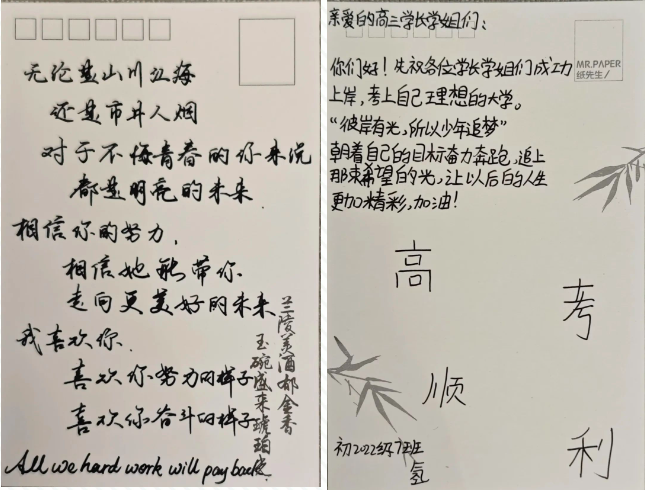 无论是山川江海
还是市井人烟
对于不悔青春的你来说
都是明亮的未来
相信你的努力,
相信她能带你
走向更美好的未来
我喜欢你.
喜欢你努力的样子
喜欢你奋斗的样子
兰陵美酒郁金香
玉碗盛来琥珀光
All we hard work will pay back
亲爱的高三学长学姐们:
MR.PAPER
纸先生/
你们好!先祝各位学长学姐们成功
上岸,考上自己理想的大学。
“彼岸有光,所以少年追梦”
朝着自己的目标奋力奔跑,追上
那束希望的光,让以后的人生
更加精彩,加油!
高
考
顺
利
初2022级7班
氢